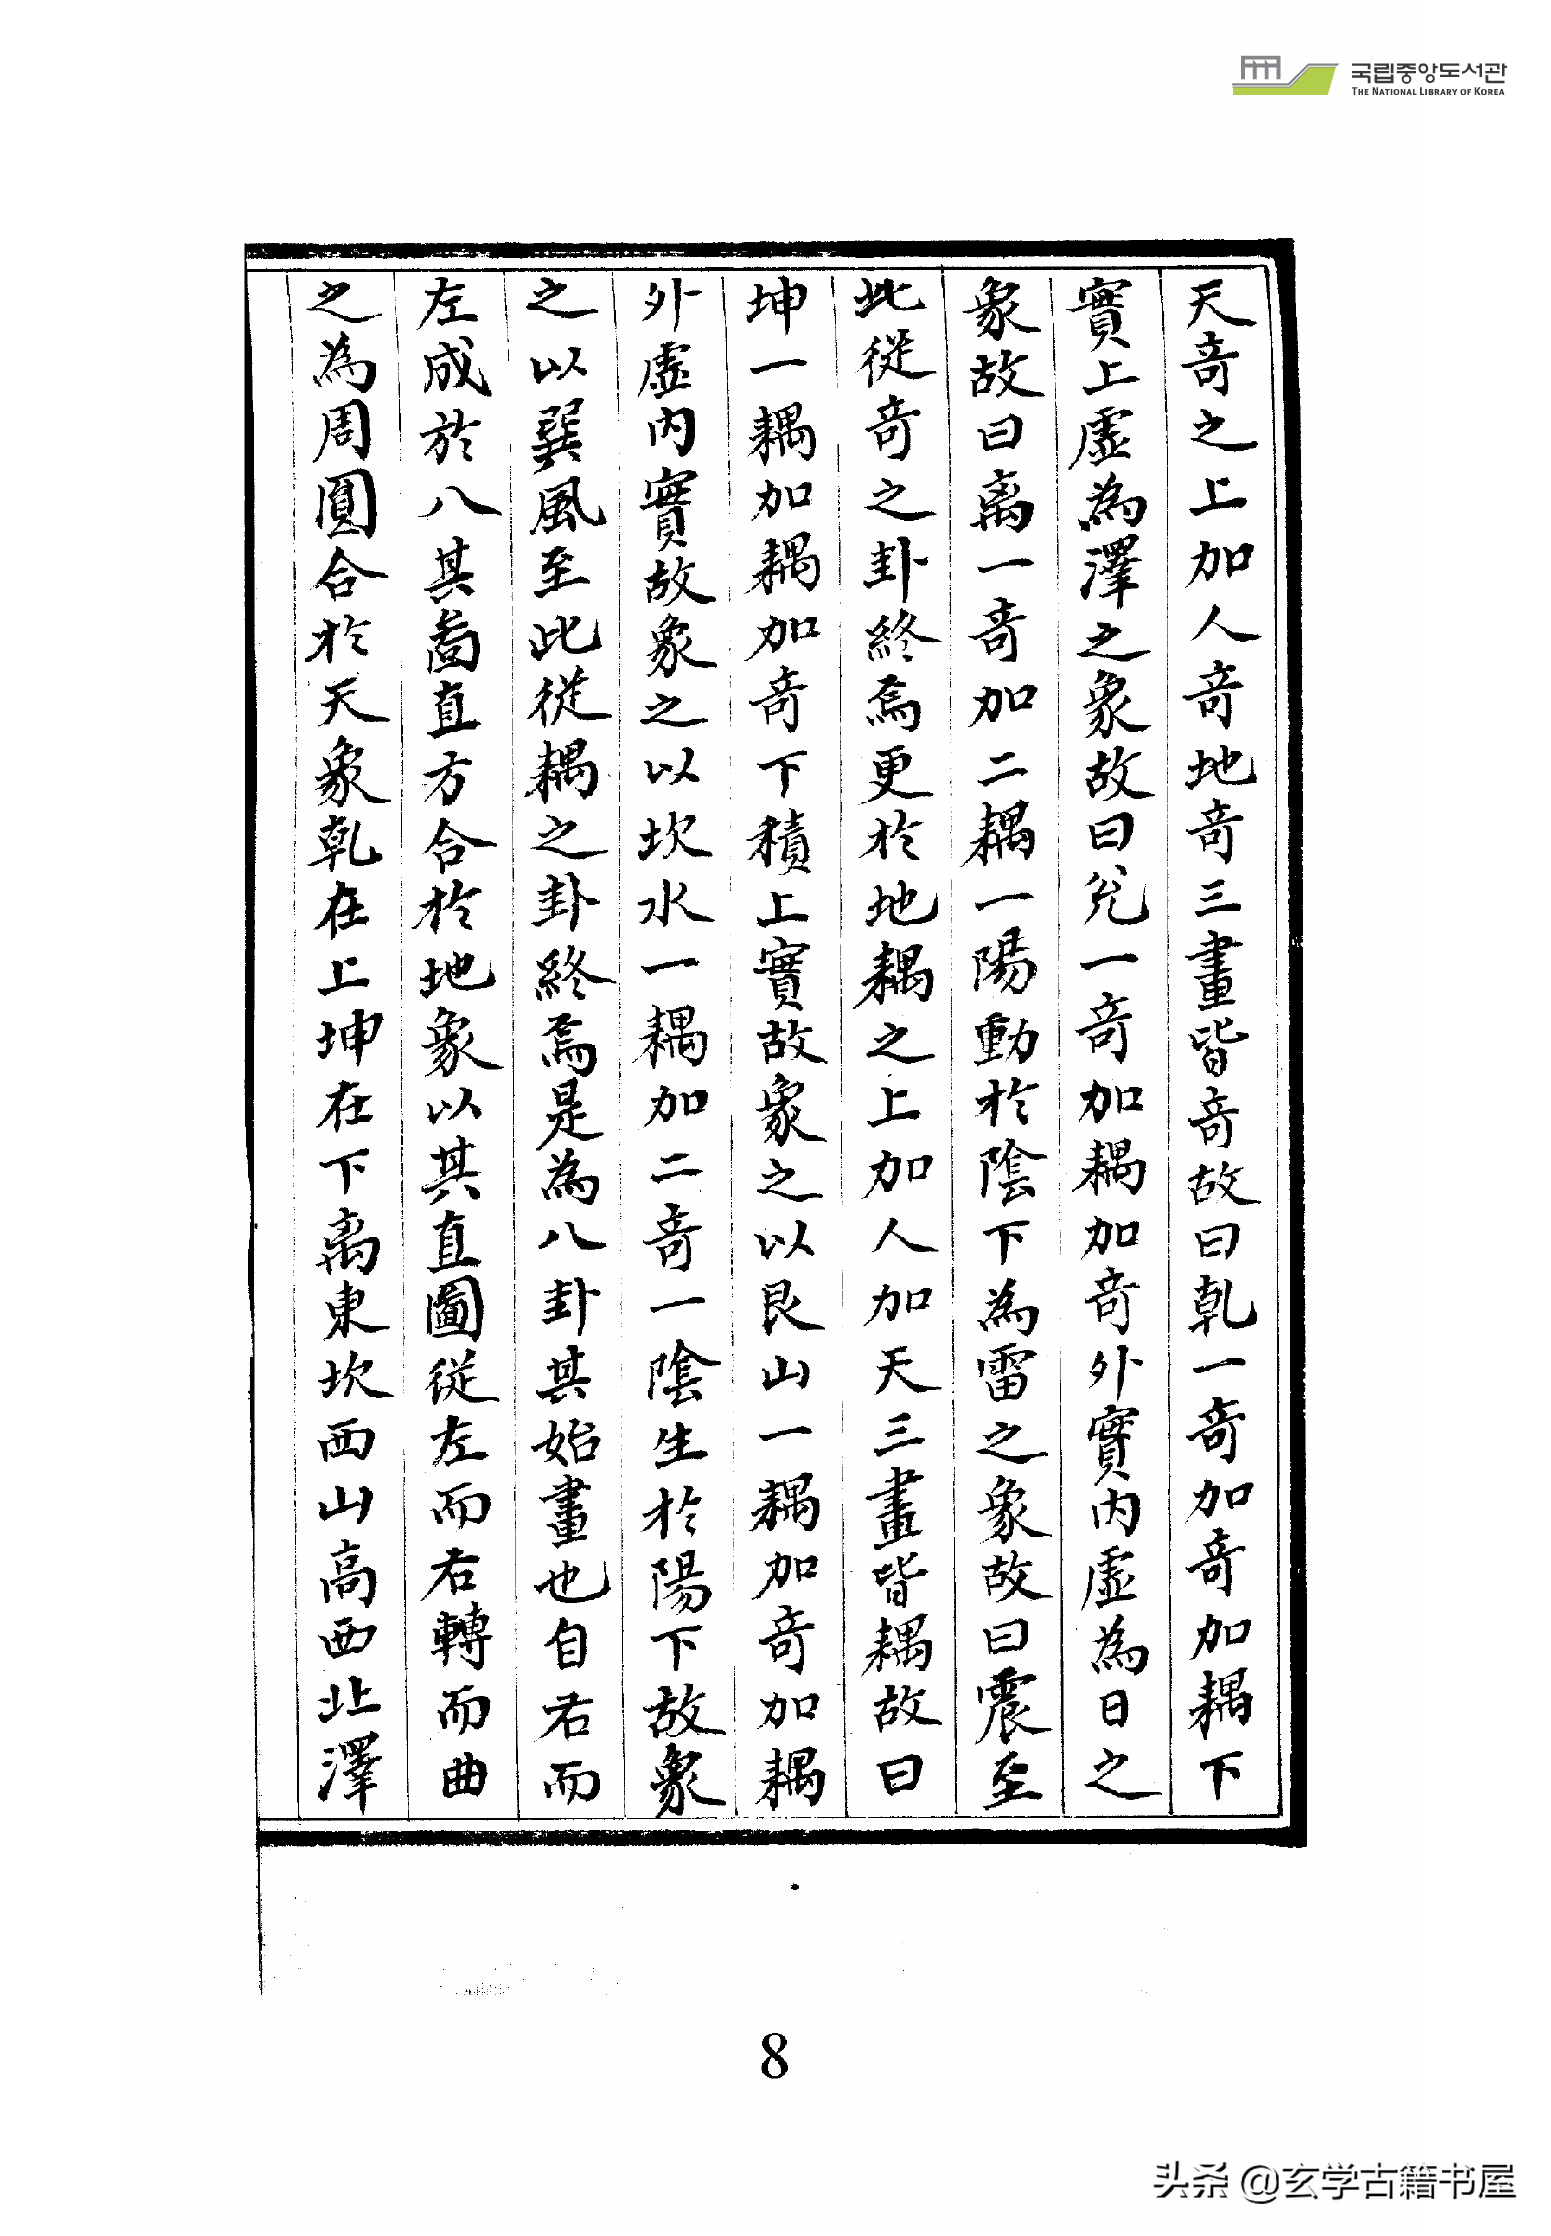 국립중앙도서관
THE NATIONAL LIBRARY OF KOREA
天奇之上加人奇地奇三畫皆奇故曰乹一奇加奇加耦下
實上虛為澤之象故曰兊一奇加耦加奇外實内虛為日之
象故曰离一奇加二耦一陽動於陰下為雷之象故曰震至
此從奇之卦終焉更於地耦之上加人加天三畫皆耦故曰
坤一耦加耦加奇下積上實故象之以艮山一耦加奇加耦
外虛内實故象之以坎水一耦加二奇一陰生於陽下故象
之以巽風至此從耦之卦終焉是為八卦其始畫也自右而
左成於八其啚直方合於地象以其直圖從左而右轉而曲
之為周圓合於天象乹在上坤在下离東坎西山高西北澤
8
头条 @玄学古籍书屋